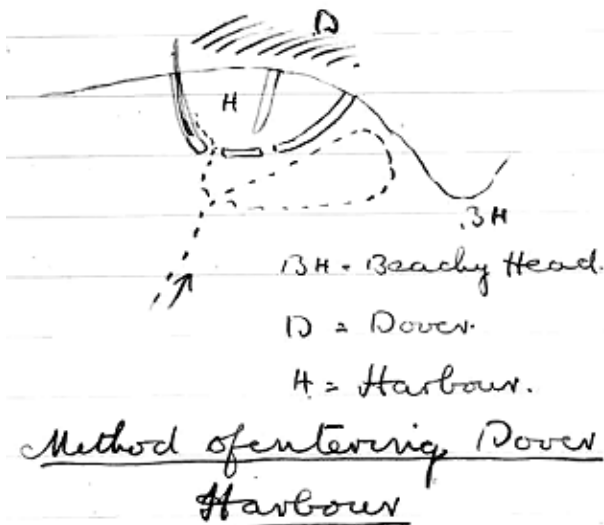 D
H
BH
BH = Beachy Head.
D = Dover.
H = Harbour.
Method of entering Dover
Harbour